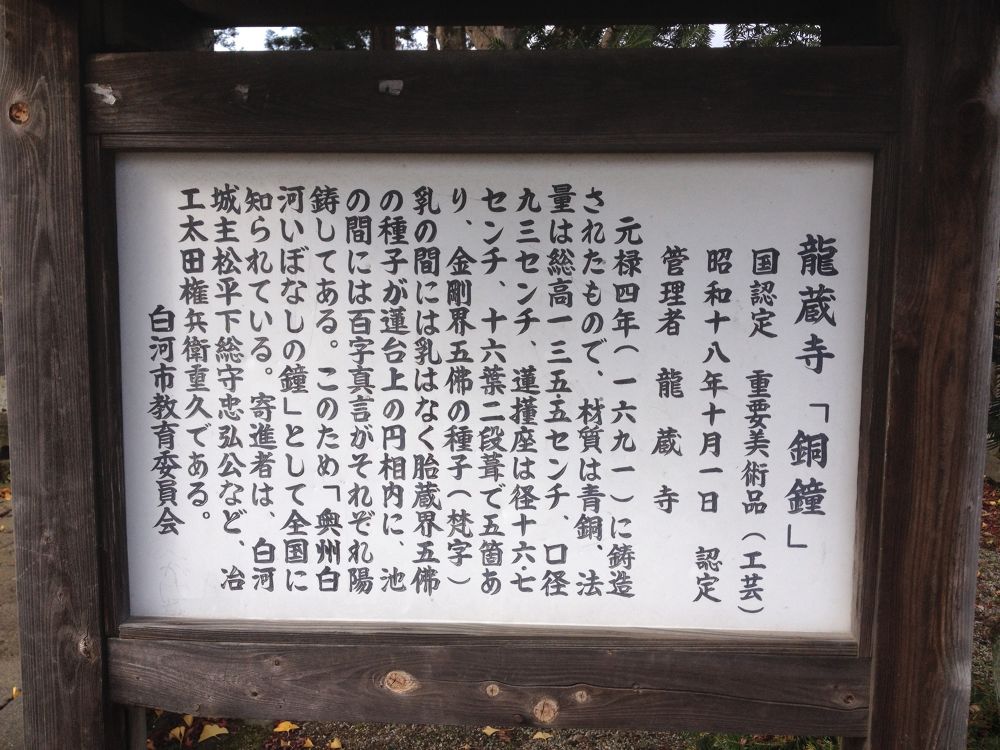 龍蔵寺「銅鐘」
国認定 重要美術品(工芸)
昭和十八年十月一日 認定
管理者 龍蔵寺
元禄四年(一六九一)に鋳造
されたもので、材質は青銅、法
量は総高一三五・五センチ、口径
九三センチ、蓮撞座は径十六・七
センチ、十六葉二段葺で五箇あ
り、金剛界五佛の種子(梵字)
乳の間には乳はなく胎蔵界五佛
の種子が蓮台上の円相内に、池
の間には百字真言がそれぞれ陽
鋳してある。このため「奥州白
河いぼなしの鐘」として全国に
知られている。寄進者は、白河
城主松平下総守忠弘公など、冶
工太田権兵衛重久である。
白河市教育委員会